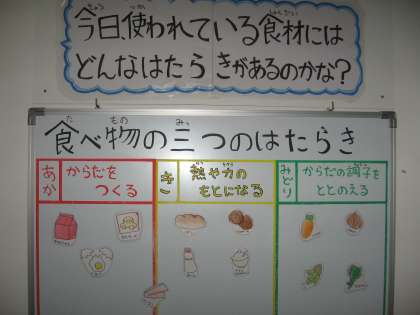 今日、使われている食材には
どんなはたらきがあるのかな?
食べ物の三つのはたらき
あか
からだを
つくる
き
熱や力の
もとになる
みどり
からだの調子を
ととのえる